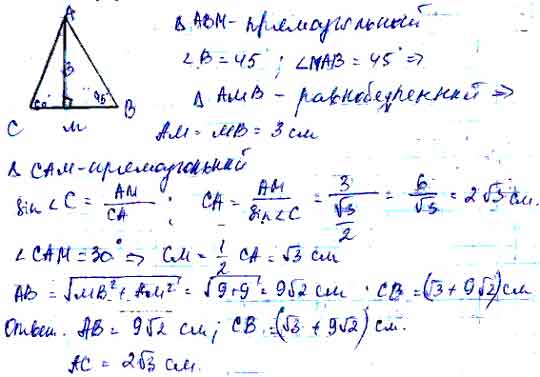 A
Δ ABM - прямоугольный
∠B = 45° ; ∠MAB = 45° ⇒
3
60° 45°
C M B
Δ AMB - равнобедренный ⇒
AM = MB = 3 см
Δ CAM - прямоугольный
sin ∠C = AM/CA ; CA = AM/sin∠C = 3/(√3/2) = 6/√3 = 2√3 см.
∠CAM = 30° ⇒ CM = 1/2 CA = √3 см
AB = √(MB² + AM²) = √(9+9) = 9√2 см · CB = (√3 + 9√2) см
Ответ. AB = 9√2 см ; CB = (√3 + 9√2) см.
AC = 2√3 см.